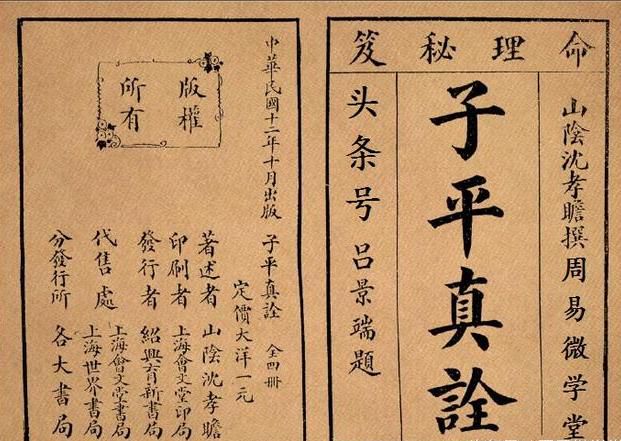 命理秘笈
山陰沈孝瞻撰周易微学堂
子平真詮
头条号吕景端題
中華民國十二年十月出版 子平真詮 全四冊
定價大洋一元
版權
所有
著述者 山陰沈孝瞻
印刷者 上海會文堂印局
發行者 紹興育新書局
代售處 上海會文堂書局
上海世界書局
分發行所 各大書局